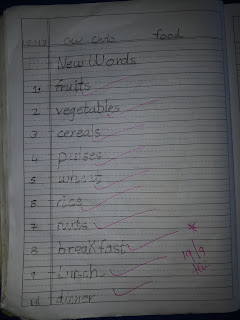 food
New Words
1. fruits
2 vegetables
3 cereals
4 pulses
5 wheat
6 rice
7 nuts
8 breakfast
9 lunch
10 dinner
19/9